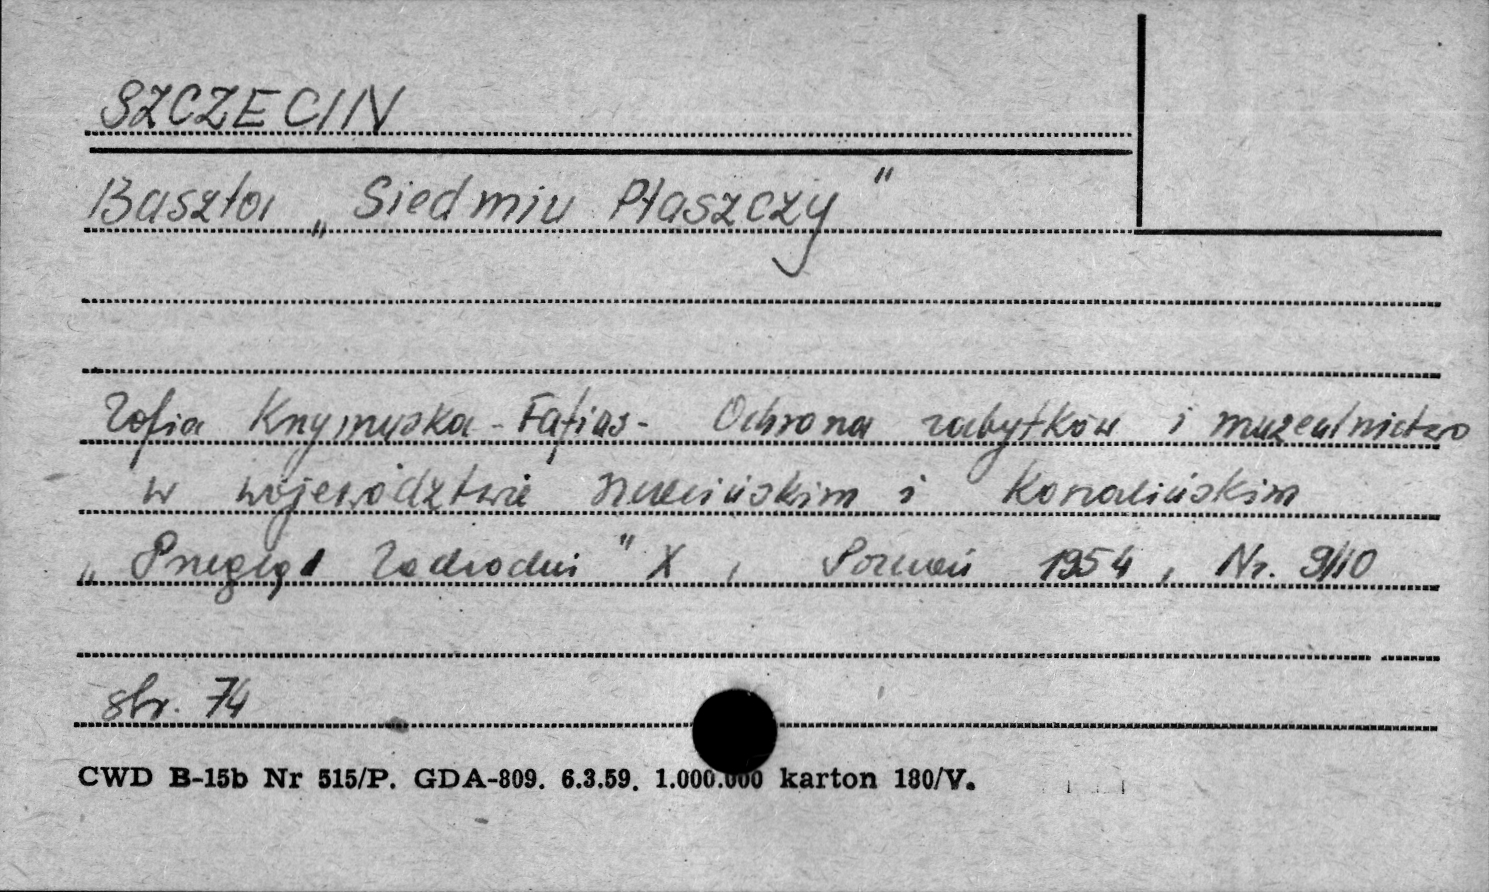 SZCZECIN
Baszta „Siedmiu Płaszczy"
Zofia Krzymuska-Fafius - Ochrona zabytków i muzealnictwo
w województwie szczecińskim i Koszalińskim
„Przegląd Zachodni" X, Poznań 1954, Nr. 9/10
str. 74
CWD B-15b Nr 515/P. GDA-809. 6.3.59. 1.000.000 karton 180/V.